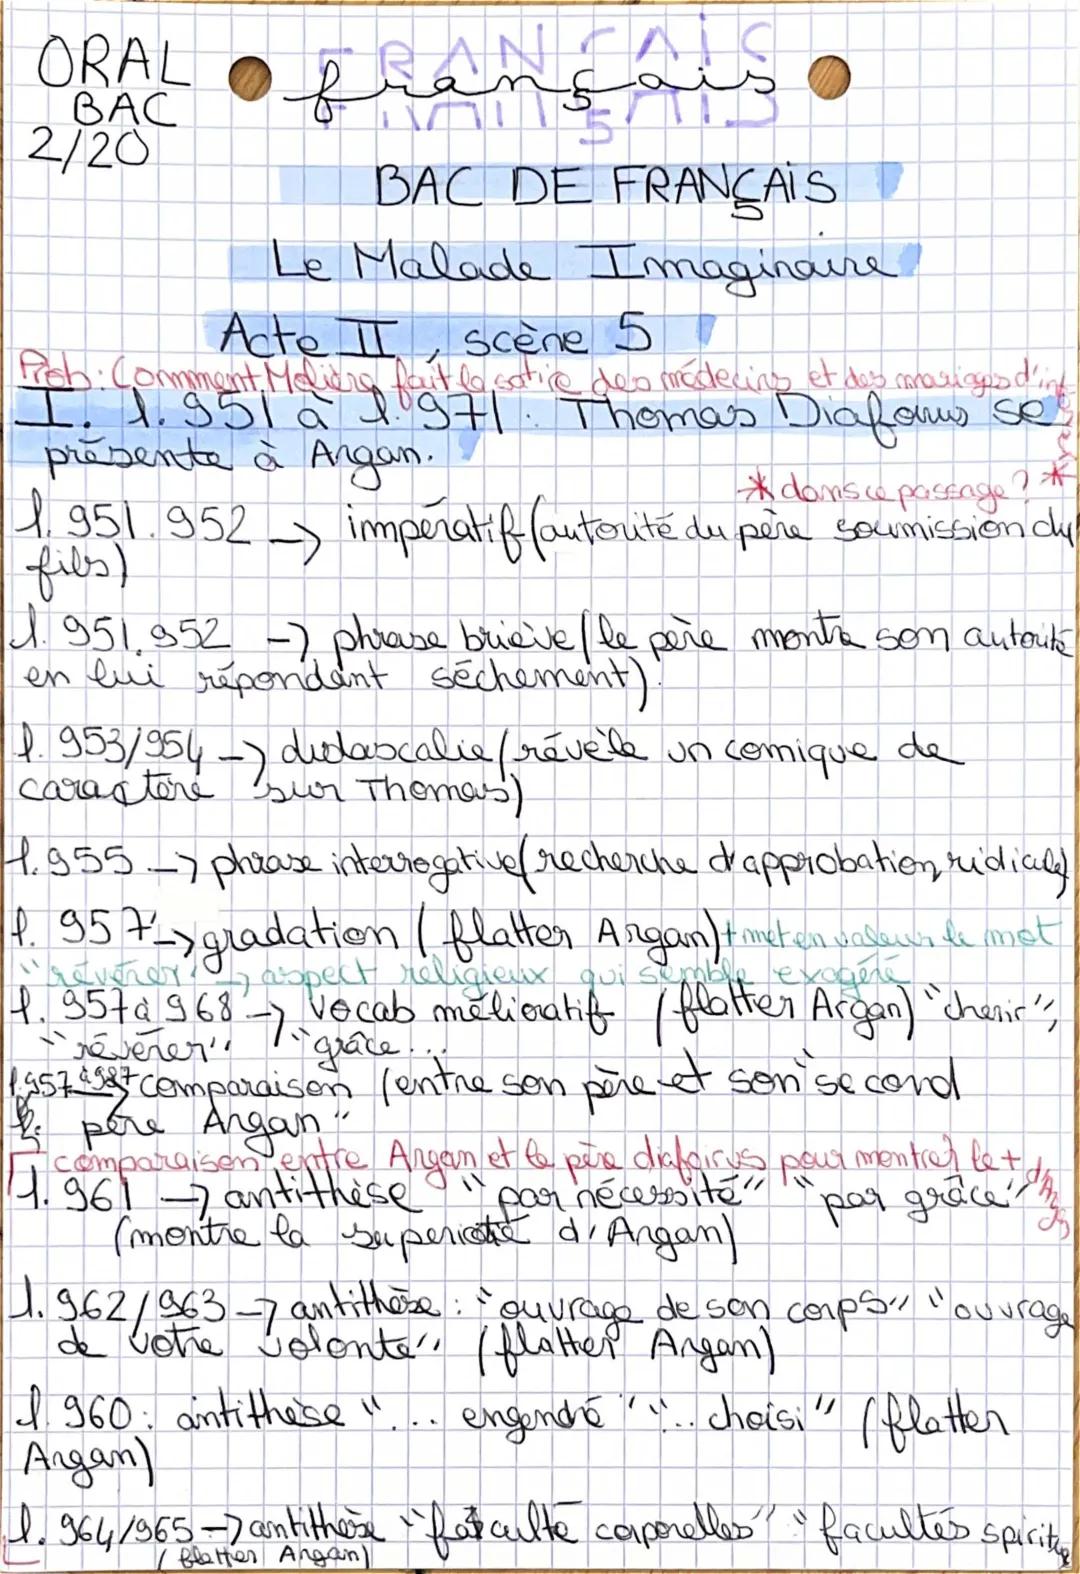 ORAL
BAC
2/20
FRANÇAIS
français
BAC DE FRANÇAIS
Le Malade Imaginaire
Acte II, scène 5
Prob: Comment Molière fait la satire des médecins et des mariages d'int
I. l. 951 à l. 971: Thomas Diafoirus se
présente à Argan.
* dans ce passage ? *
l. 951.952 -> impératif (autorité du père soumission du
fils)
l. 951.952 -> phrase brieve (le père montre son autorité
en lui répondant séchement).
l. 953/954 -> didascalie (révèle un comique de
caractère sur Thomas)
l. 955 -> phrase interrogative (recherche d'approbation, ridicule)
l. 957 -> gradation (flatter Argan) + met en valeur le mot
"révérer" -> aspect religieux qui semble exagéré
l. 957 à 968 -> vocab mélioratif (flatter Argan) "cherir",
"révérer", "grâce...
l. 957 à 987 -> comparaison (entre son père et son "second
père Argan"
comparaison entre Argan et le père diafoirus pour montrer le + d'Arg
l. 961 -> antithèse "par nécessité" "par grâce"
(montre la superiorité d'Argan)
l. 962/963 -> antithèse : "ouvrage de son corps" "ouvrage
de votre volonté" (flatter Argan)
l. 960: antithèse "... engendré" "... choisi" (flatter
Argan)
l. 964/965 -> antithèse "faculté corporelles" "facultés spiritue
(flatter Argan)